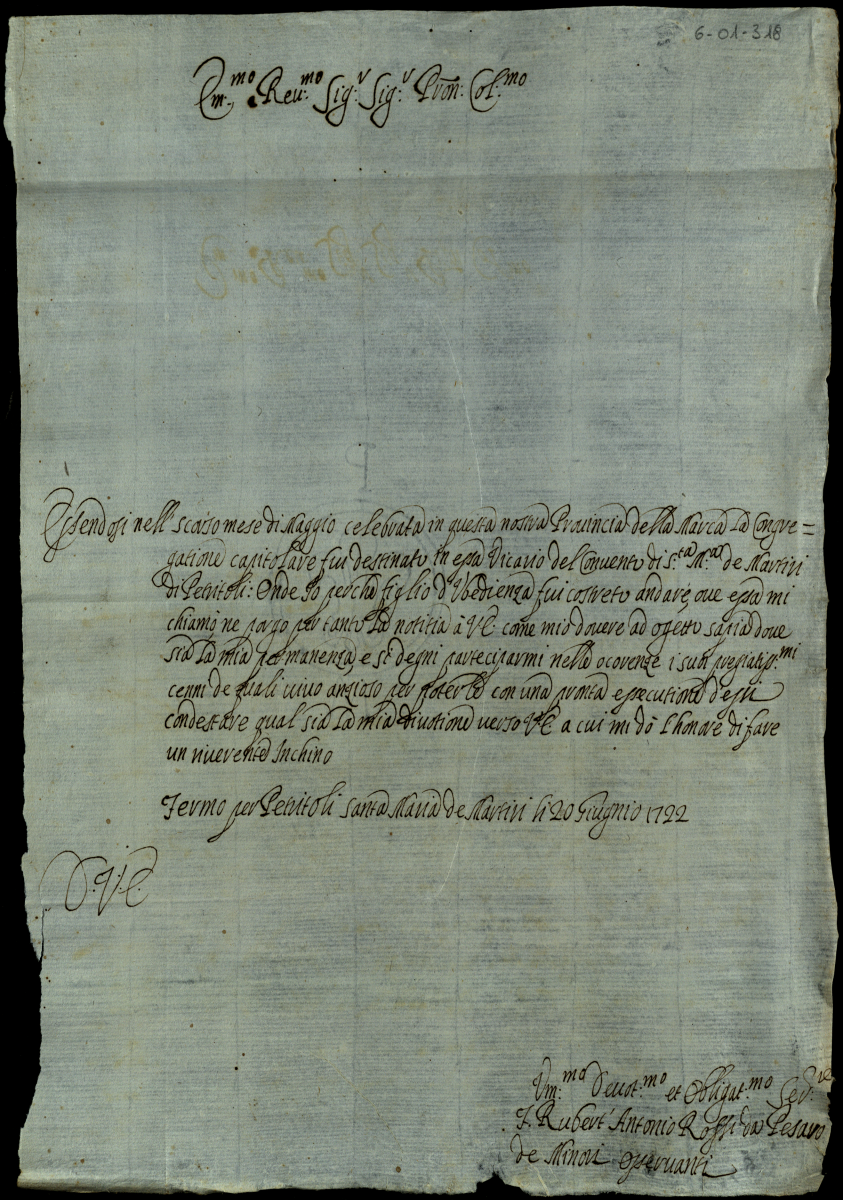 6-01-318
Em:mo e Reu:mo Sig:r Sig:r Pron: Col:mo
Essendosi nell scorso mese di Maggio celebrata in questa nostra Prouincia della Marca la Congre=
gatione capitolare fui destinato in essa Vicario del Conuento di S:ta M:a de Martiri
di Petritoli: Onde Io perche figlio d'Vbedienza fui costreto andare, oue essa mi
chiamò, ne porgo per tanto la notitia à V E come mio douere ad ogetto sapia doue
sia la mia permanenza, e si degni participarmi nella ocorenze i suoi pregiatiss:mi
cenni de quali viuo anzioso per poterle con una pronta essecutione d'essi
condestare qual sia la mia diuotione verso V E a cui mi dò l'honore di fare
un riuerente Inchino
Fermo per Petritoli Santa Maria de Martiri li 20 Giugnio 1722
D: V: E:
Vm:mo Deuot:mo et Obligat:mo Ser:re
F. Rubert' Antonio Rossi da Pesaro
de Minori Osseruanti